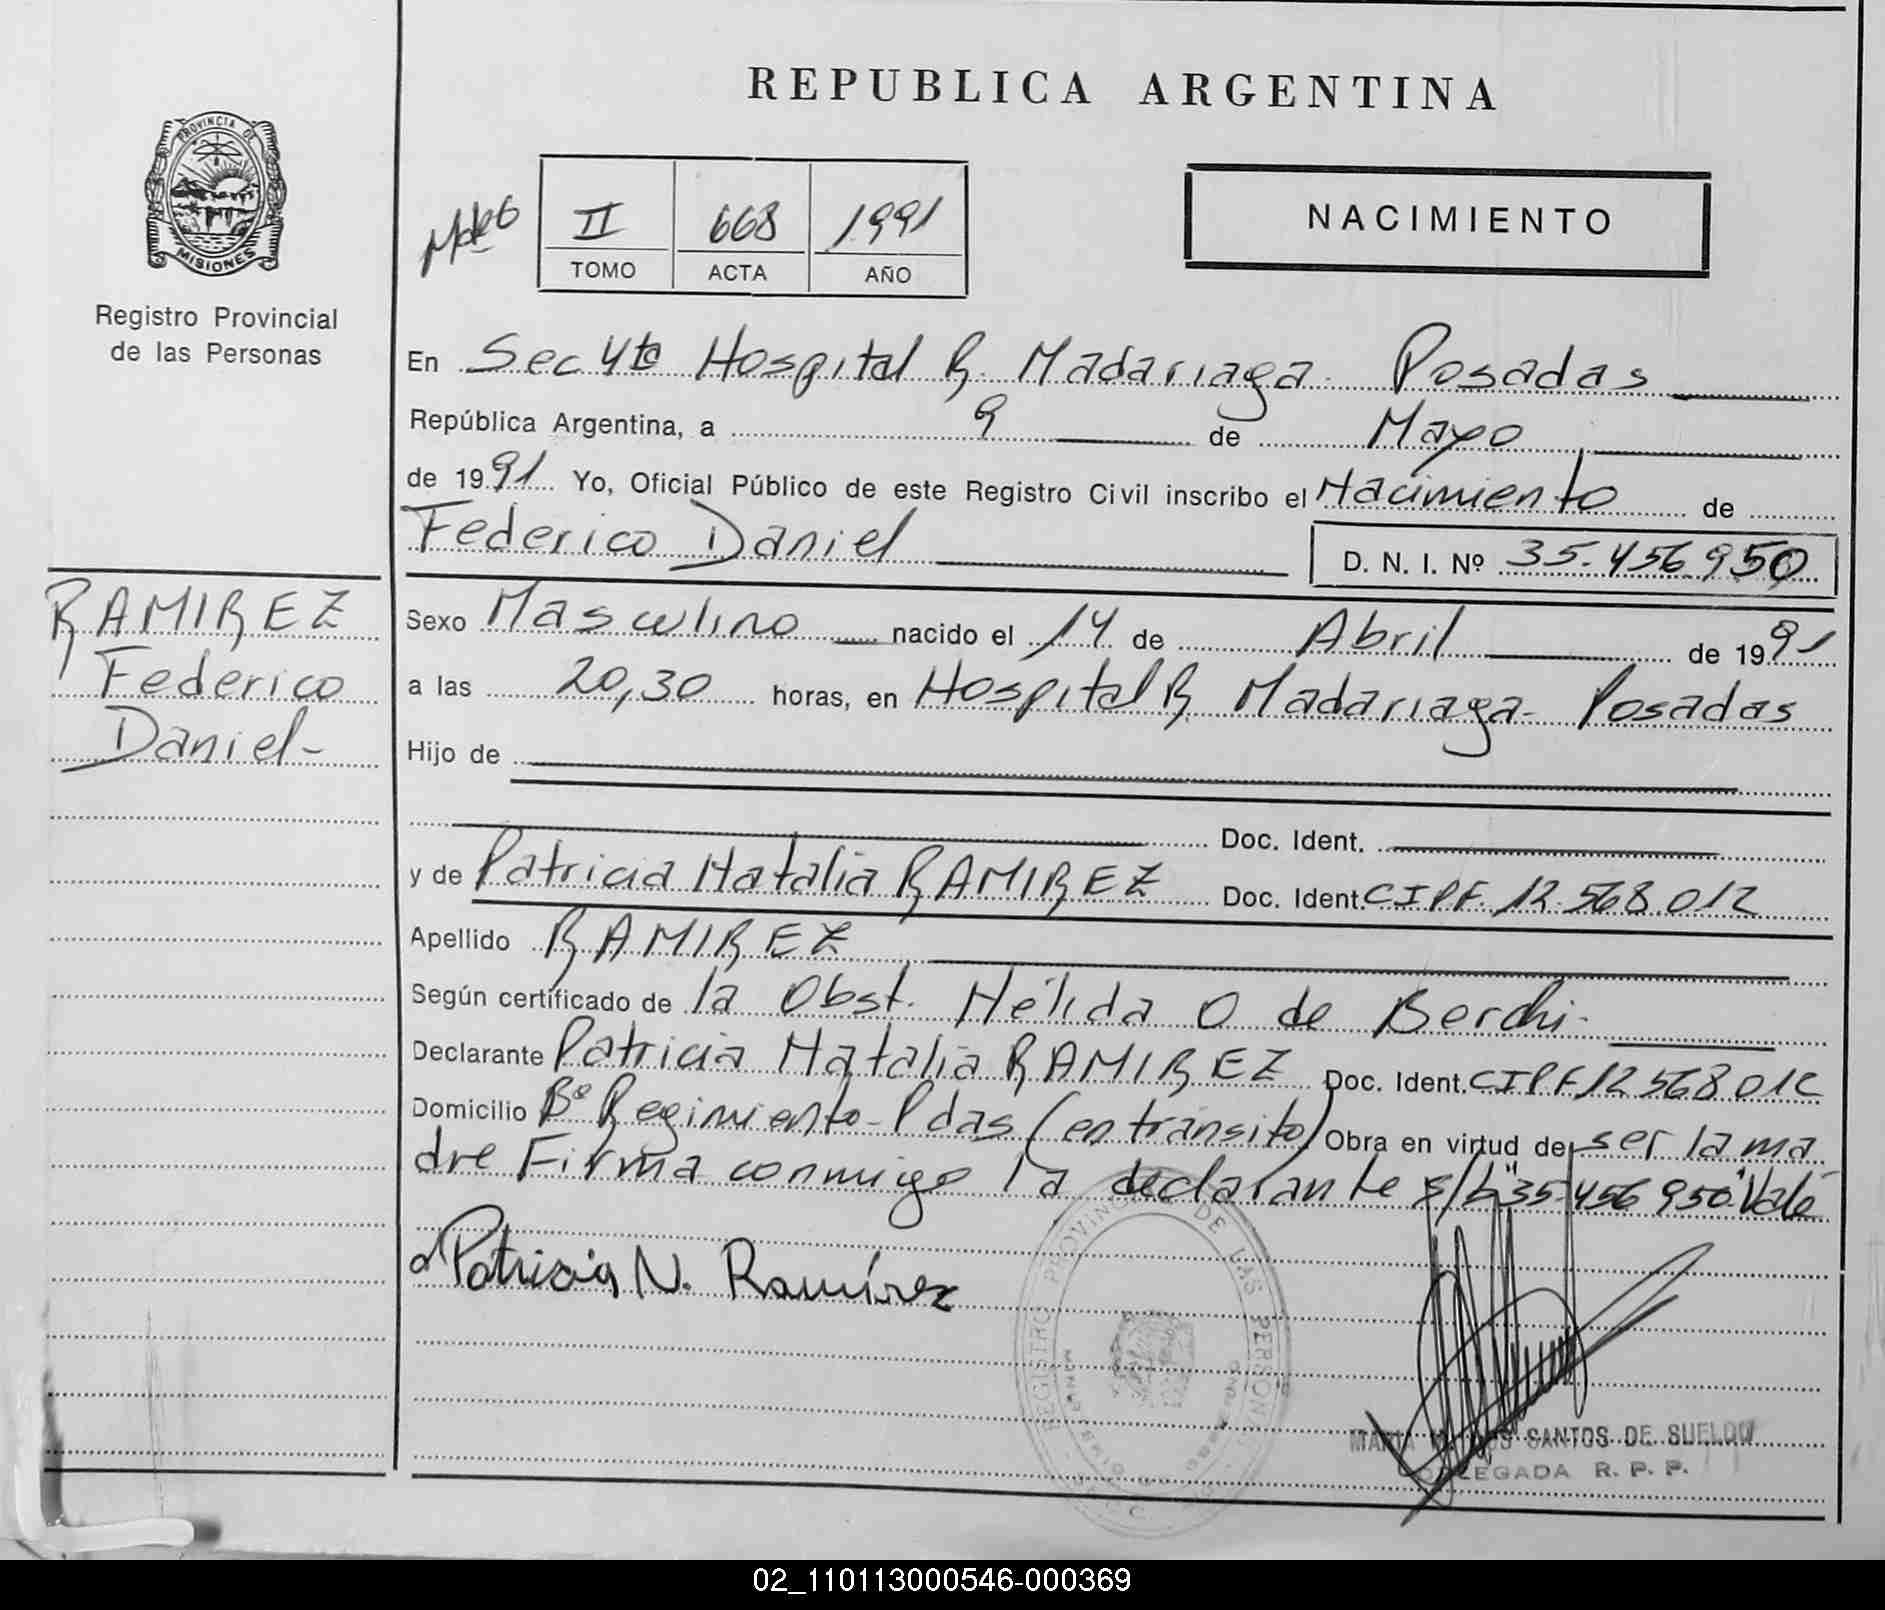 REPUBLICA ARGENTINA
PROVINCIA DE
MISIONES
Registro Provincial
de las Personas
II 668 1991
TOMO ACTA AÑO
NACIMIENTO
En Sec 4ta Hospital R. Madariaga Posadas
República Argentina, a 9 de Mayo
de 1991 Yo, Oficial Público de este Registro Civil inscribo el Nacimiento de
Federico Daniel D. N. I. Nº 35.456.950
RAMIREZ
Federico
Daniel-
Sexo Masculino nacido el 14 de Abril de 1991
a las 20,30 horas, en Hospital R Madariaga- Posadas
Hijo de
Doc. Ident.
y de Patricia Natalia RAMIREZ Doc. Ident. CIPF 12.568.012
Apellido RAMIREZ
Según certificado de la Obst. Nélida O de Berchi-
Declarante Patricia Natalia RAMIREZ Doc. Ident. CIPF 12 568 012
Domicilio Bº Regimiento-Pdas (en tránsito) Obra en virtud de ser la ma
dre Firma conmigo la declarante s/b "35.456 950" Vale
Patricia N. Ramírez
REGISTRO PROVINCIAL DE LAS PERSONAS
SANTOS DE SUELDO
DELEGADA R. P. P.
02_110113000546-000369